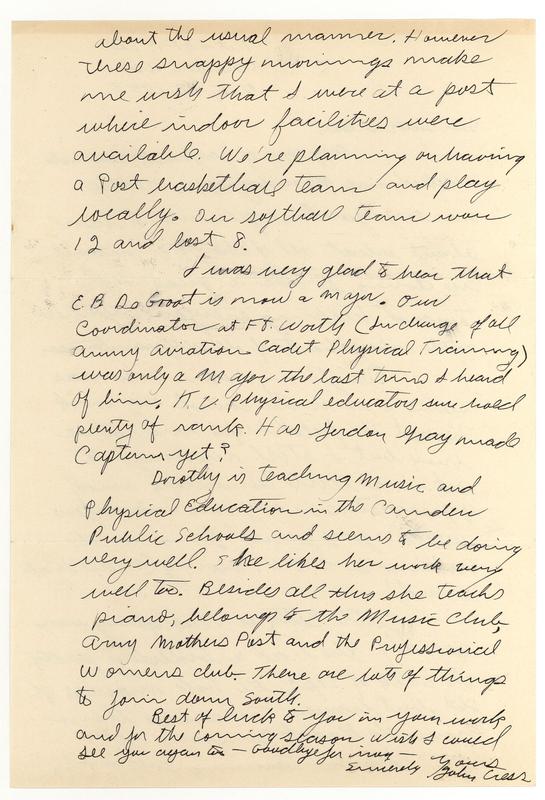 about the usual manner. However
these snappy mornings make
me wish that I were at a post
where indoor facilities were
available. We're planning on having
a Post basketball team and play
locally. Our softball team won
12 and lost 8.
I was very glad to hear that
E.B. De Groot is now a Major. Our
Coordinator at Ft. Worth (In charge of all
army aviation Cadet Physical Training)
was only a Major the last time I heard
of him. physical educators sure hold
plenty of rank. Has Gordon Gray made
Captain yet?
Dorothy is teaching Music and
Physical Education in the Camden
Public Schools and seems to be doing
very well. She likes her work very
well too. Besides all this she teachs
piano, belongs to the Music Club,
Army Mothers Post and the Professional
Womens club. There are lots of things
to join down South.
Best of luck to you in your work
and for the coming season. Wish I could
see you again — Goodbye for now —
Yours
Sincerely
John Cress